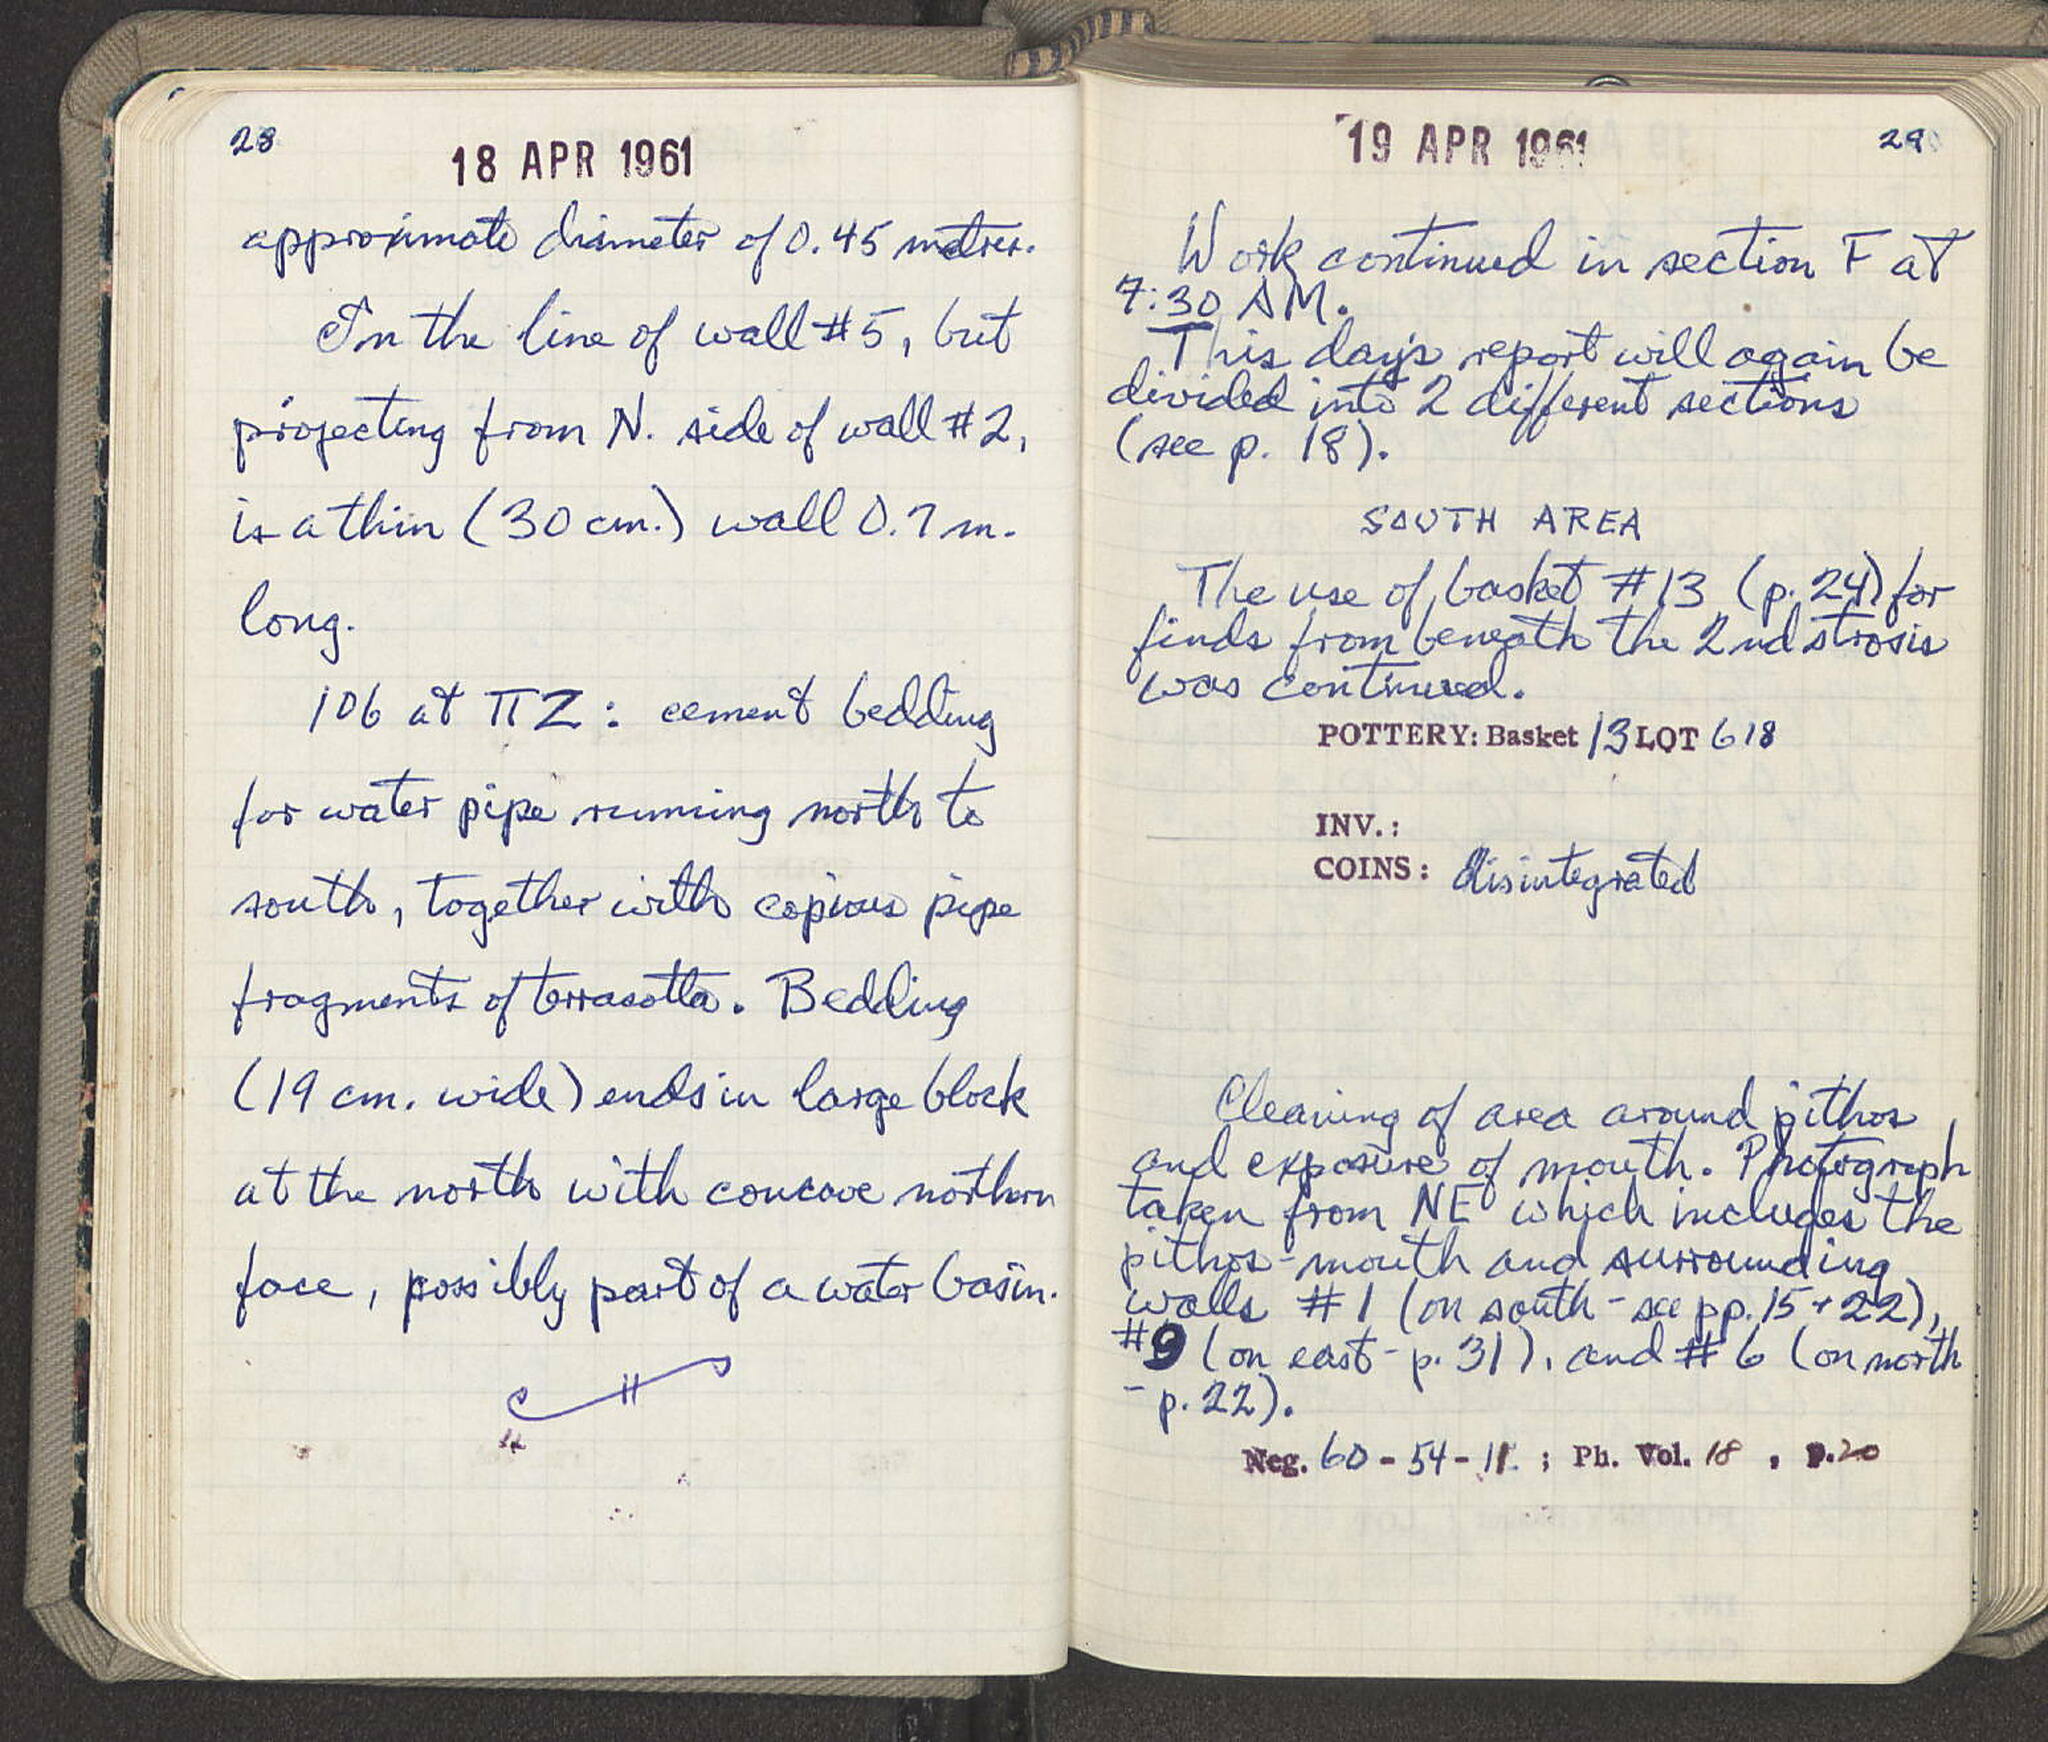 28
18 APR 1961
approximate diameter of 0.45 metres.
In the line of wall #5, but
projecting from N. side of wall #2,
is a thin (30 cm.) wall 0.7 m.
long.
106 at ΠZ: cement bedding
for water pipe running north to
south, together with copious pipe
fragments of terracotta. Bedding
(19 cm. wide) ends in large block
at the north with concave northern
face, possibly part of a water basin.
19 APR 1961
29
Work continued in section F at
7:30 AM.
This day's report will again be
divided into 2 different sections
(see p. 18).
SOUTH AREA
The use of basket #13 (p. 24) for
finds from beneath the 2nd strosis
was continued.
POTTERY: Basket 13 LOT 618
INV.:
COINS: disintegrated
Cleaning of area around pithos
and exposure of mouth. Photograph
taken from NE which includes the
pithos-mouth and surrounding
walls #1 (on south - see pp. 15 + 22),
#9 (on east - p. 31), and #6 (on north
- p. 22).
Neg. 60-54-11; Ph. Vol. 18, p. 20